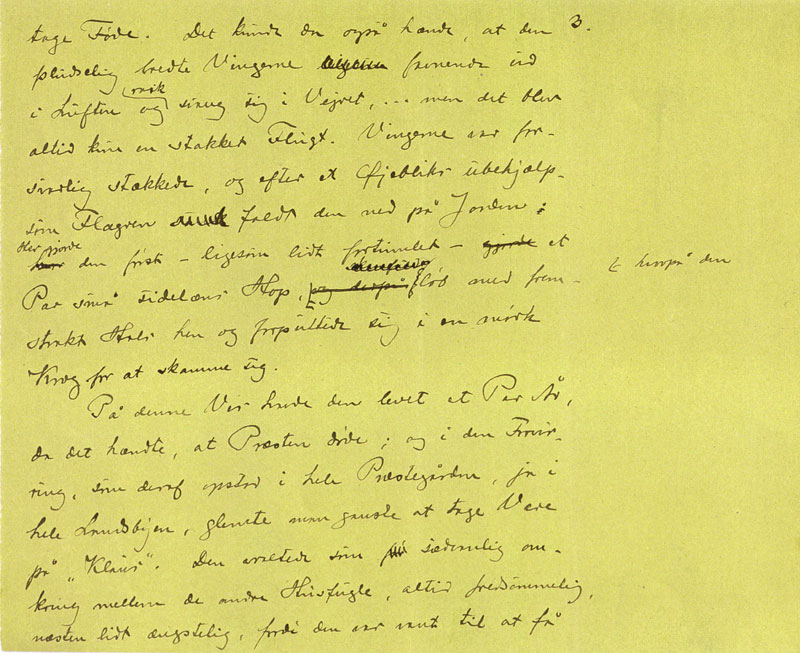 tage Føde. Det kunde da også hænde, at den 3.
pludselig bredte Vingerne frønende ud
i Luften og svang sig i Vejret, ... men det blev
altid kun en stakket Flugt. Vingerne var for-
svarlig stækkede, og efter et Øjebliks ubehjælp-
som Flagren faldt den ned på Jorden;
den først – ligesom lidt fortumlet – gjorde et
Par små sidelæns Hop, og derpå løb med frem- hvorpå den
strakt Hals hen og forputtede sig i en mørk
Krog for at skamme sig.
På denne Vis havde den levet et Par År,
da det hændte, at Præsten døde; og i den Forvir-
ring, som deraf opstod i hele Præstegården, ja i
hele Landsbyen, glemte man ganske at tage Vare
på „Klaus". Den vraltede som sædvanlig om-
kring mellem de andre Husfugle, altid fredsommelig,
næsten lidt ængstelig, fordi den var vant til at få